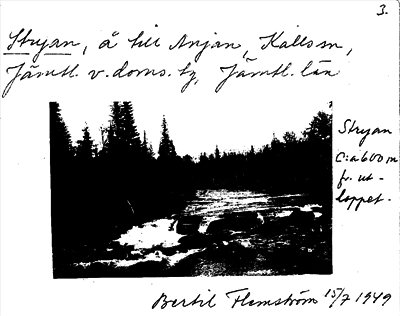 3.
Stryan, å till Anjan, Kallssn,
Jämtl. v. doms. tg, Jämtl. län
Stryan
C:a 600 m
fr. ut-
loppet.
Bertil Flemström 15/7 1949